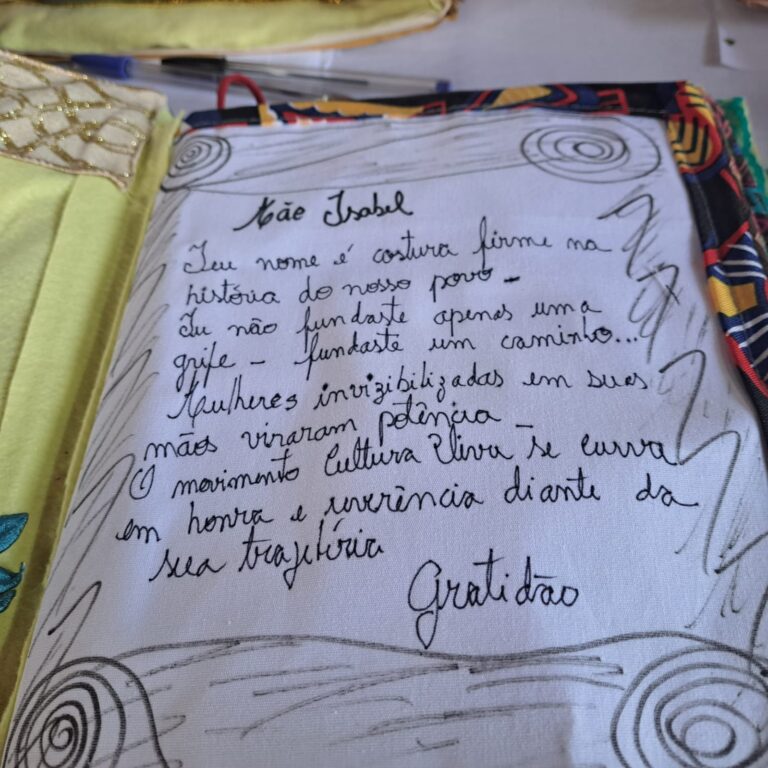 Mãe Isabel
Teu nome é costura firme na
história do nosso povo -
Tu não fundaste apenas uma
grife - fundaste um caminho...
Mulheres invizibilizadas em suas
mãos viraram potência
O movimento Cultura Viva se curva
em honra e reverência diante da
sua trajetória
Gratidão